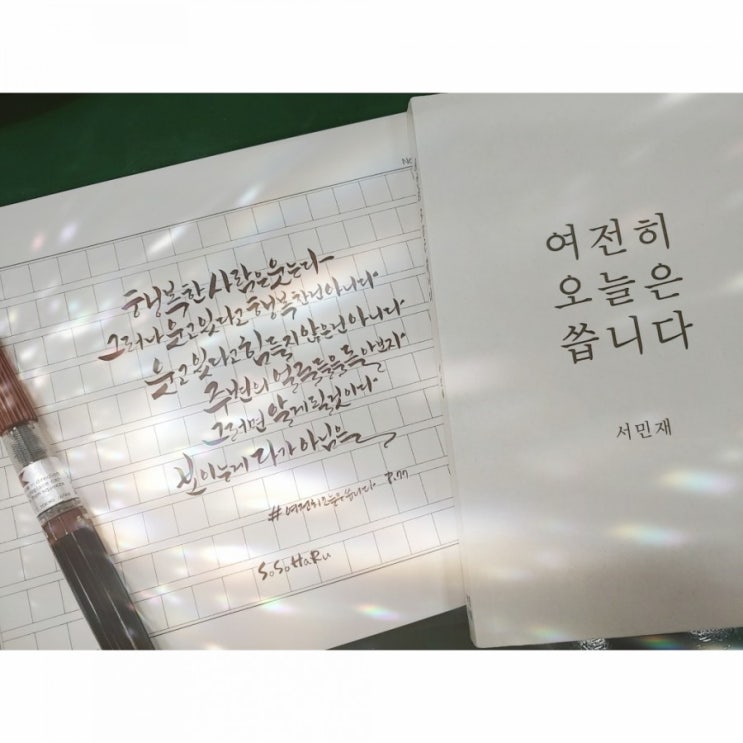 행복한 사람은 웃는다
그러나 웃고 있다고 행복한건 아니다
웃고 있다고 힘들지 않은건 아니다
주변의 얼굴들을 돌아보자
그러면 알게 될것이다
보이는게 다가 아님을
#여전히오늘은씁니다 P.77
SoSoHaRu
여전히
오늘은
씁니다
서민재